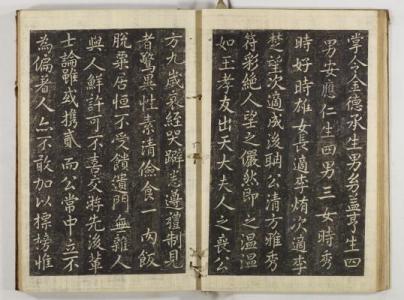 掌令金德承生男男益亨生四
男安應仁生四男三女時秀
時好時雄女長適李烠次適李
楚望次適成浚聃公清方雅秀
符彩絶人望之儼然即之温温
如王孝友出天大夫人之喪公
方九歲衰絰哭躃悉遵禮制見
者驚異性素清儉食一肉飯
脫粟居恒不受饋遺門無雜人
與人鮮許可不喜交將先浚輩
士論雖或携貳而公常中立不
為偏著人亦不敢加以標榜惟